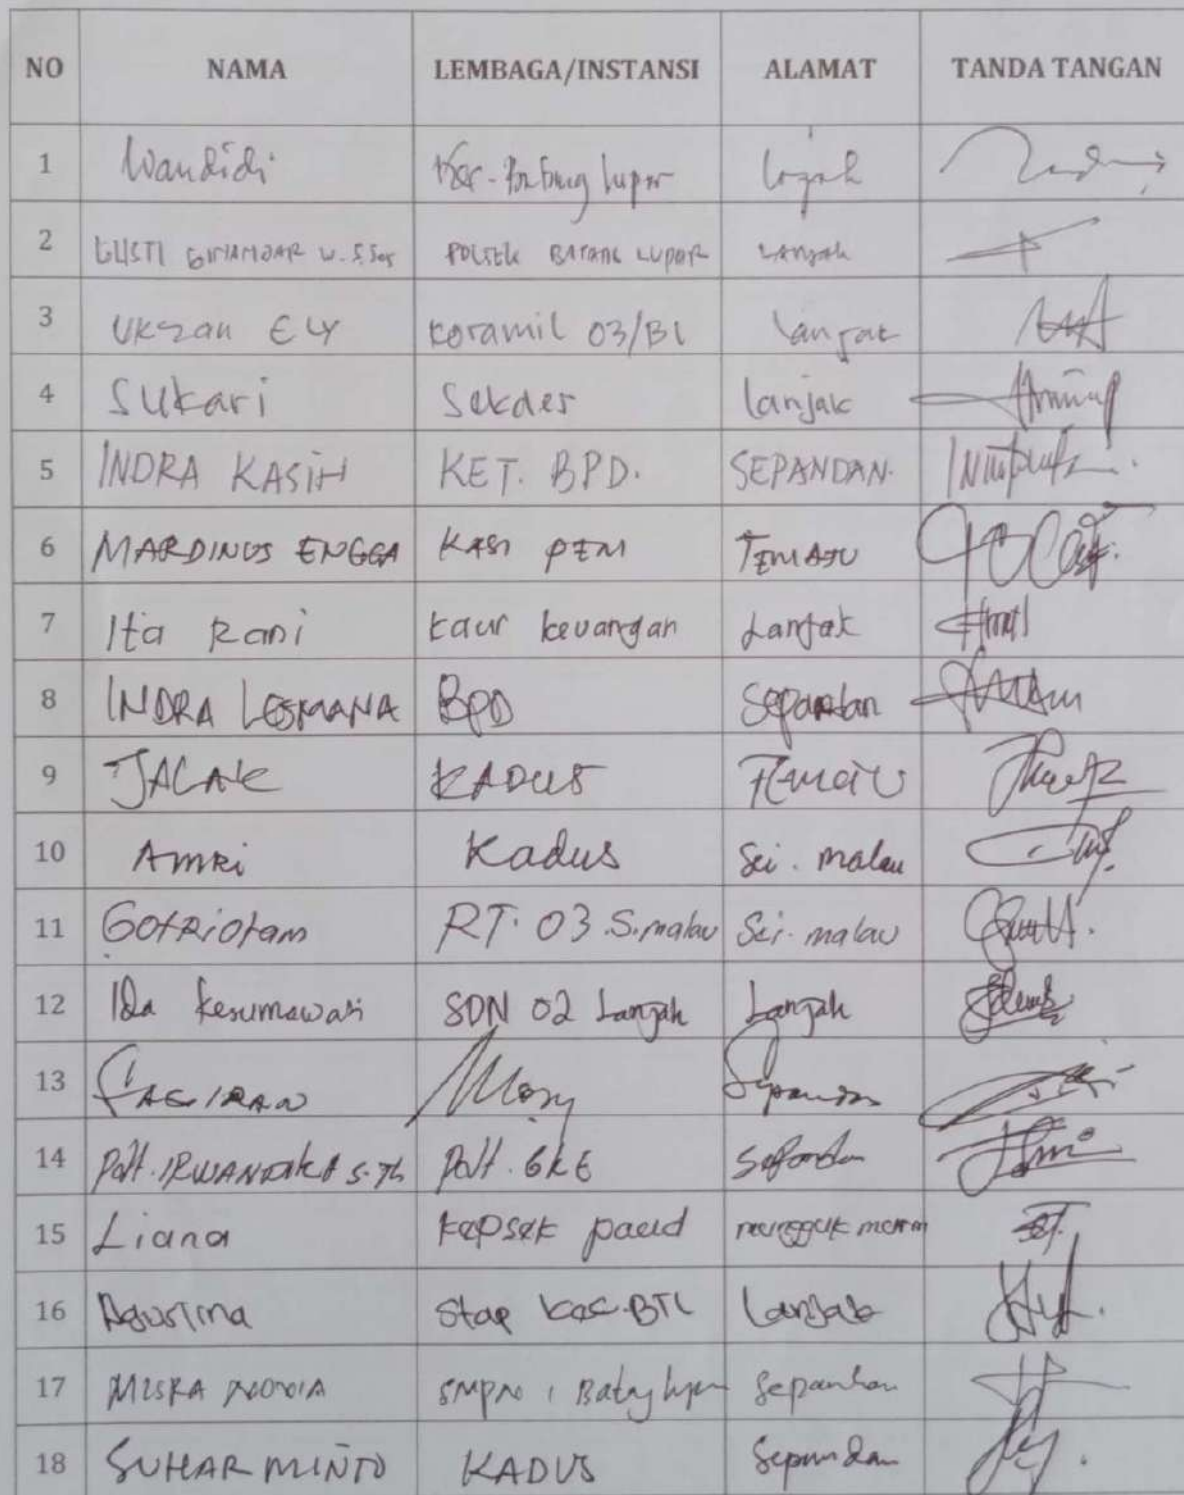 NO NAMA LEMBAGA/INSTANSI ALAMAT TANDA TANGAN
1 Wandidi Kec. Batang Lupar Lanjak
2 GUSTI GINANDJAR W. S.Sos POLSEK BATANG LUPAR Lanjak
3 Uksan ELY Koramil 03/BL Lanjak
4 Sukari Sekdes lanjak
5 INDRA KASIH KET. BPD. SEPANDAN.
6 MARDINUS ENGGA KASI PEM TEMAJU
7 Ita Rani kaur keuangan Lanjak
8 INDRA LESMANA BPD Sepandan
9 JACAK KADUS Temaju
10 Amri Kadus Sei. malau
11 GotRiotam RT. 03 S.malau Sei. malau
12 Ida kesumawati SDN 02 Lanjak Lanjak
13 Sepandan
14 Pdt. S.Th Pdt. GKE Sepandan
15 Liana kepsek paud
16 Agustina Stap kec.BTL Lanjak
17 NOVIA SMPN 1 Batang lupar Sepandan
18 SUHARMINTO KADUS Sepandan